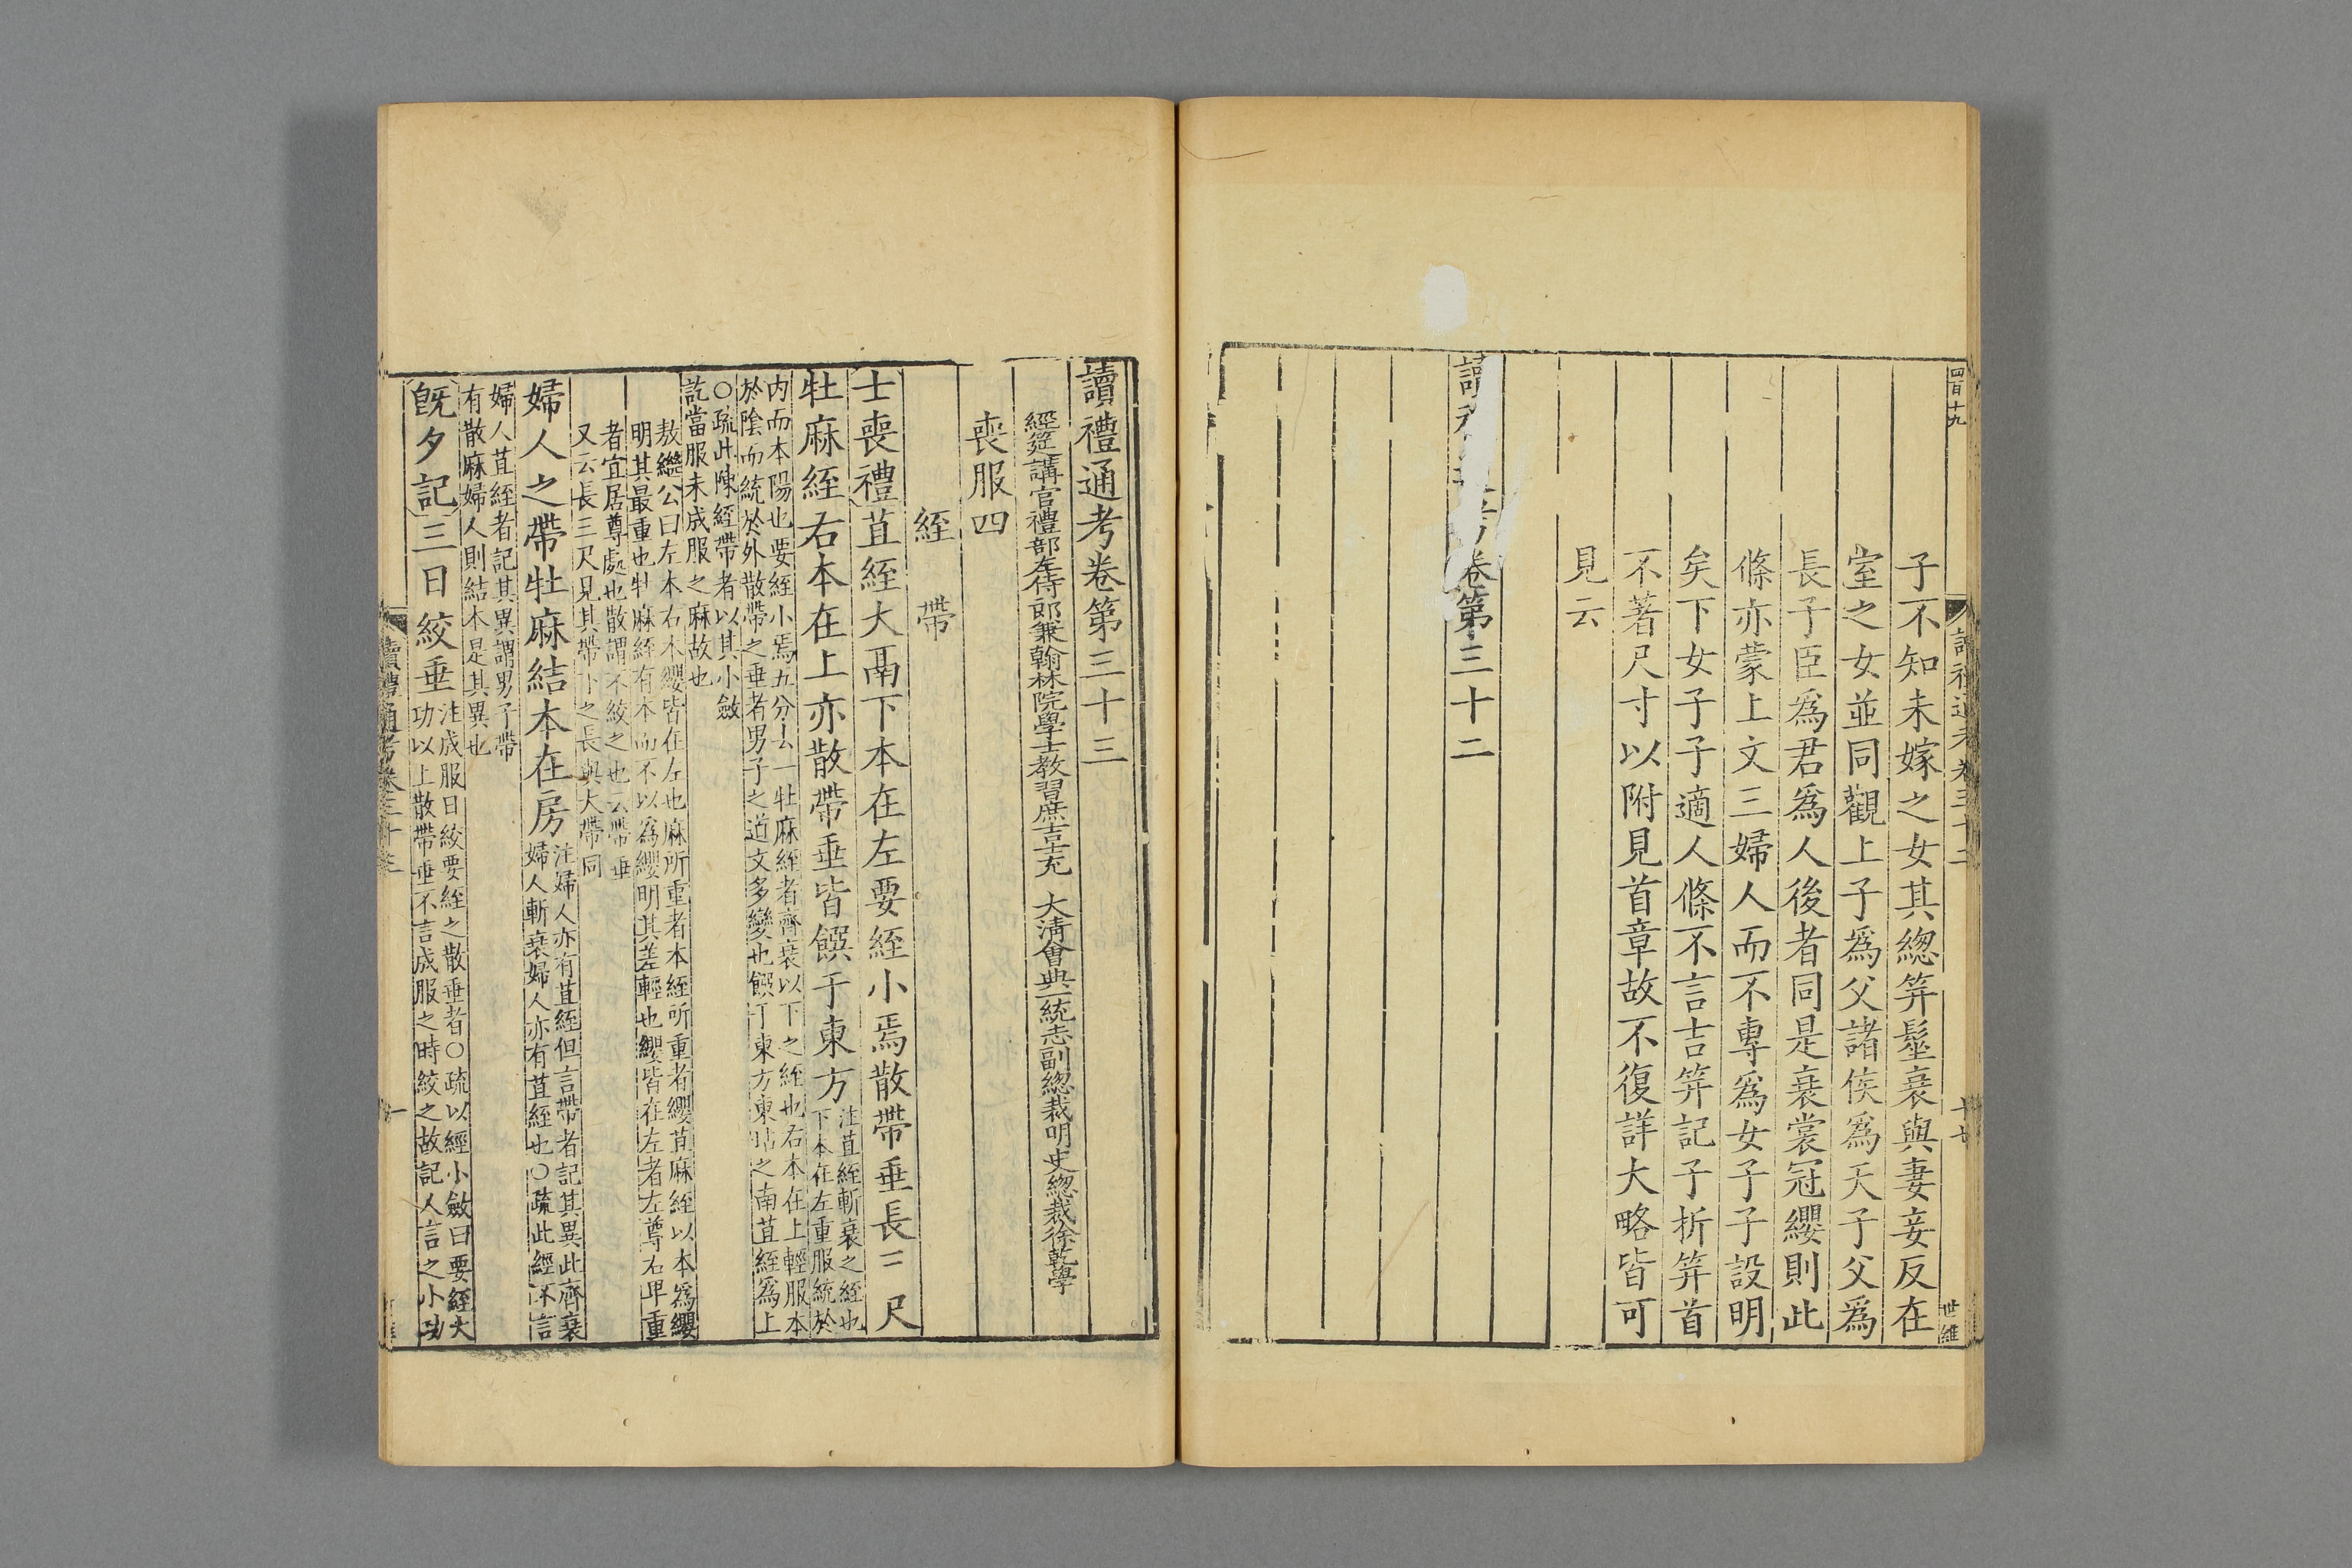 四百十九
子不知未嫁之女其總筓髽衰與妻妾反在
室之女並同觀上子爲父諸侯爲天子父爲
長子臣爲君爲人後者同是衰裳冠纓則此
條亦蒙上文三婦人而不專爲女子子設明
矣下女子子適人條不言吉筓記子折筓首
不著尺寸以附見首章故不復詳大略皆可
見云
卷第三十二
世維
讀禮通考卷第三十三
經筵講官禮部左侍郎兼翰林院學士教習庶吉士充 大清會典一統志副總裁明史總裁徐乾學
喪服四
絰 帶
士喪禮苴絰大鬲下本在左要絰小焉散帶垂長三尺
牡麻絰右本在上亦散帶垂皆饌于東方
注苴絰斬衰之絰也
下本在左重服統於
内而本陽也要絰小焉五分去一牡麻絰者齊衰以下之絰也右本在上輕服本
於陰而統於外散帶之垂者男子之道文多變也饌于東方東坫之南苴絰爲上
○疏此陳絰帶者以其小斂
訖當服未成服之麻故也
敖繼公曰左本右本纓皆在左也麻所重者本絰所重者纓苴麻絰以本爲纓
明其最重也牡麻絰有本而不以爲纓明其差輕也纓皆在左者左尊右卑重
者宜居尊處也散謂不絞之也云帶垂
又云長三尺見其帶下之長與大帶同
婦人之帶牡麻結本在房
注婦人亦有苴絰但言帶者記其異此齊衰
婦人斬衰婦人亦有苴絰也○疏此經不言
婦人苴絰者記其異謂男子帶
有散麻婦人則結本是其異也
旣夕記三日絞垂
注成服日絞要絰之散垂者○疏以經小斂日要絰大
功以上散帶垂不言成服之時絞之故記人言之小功
讀禮通考卷三十三
一